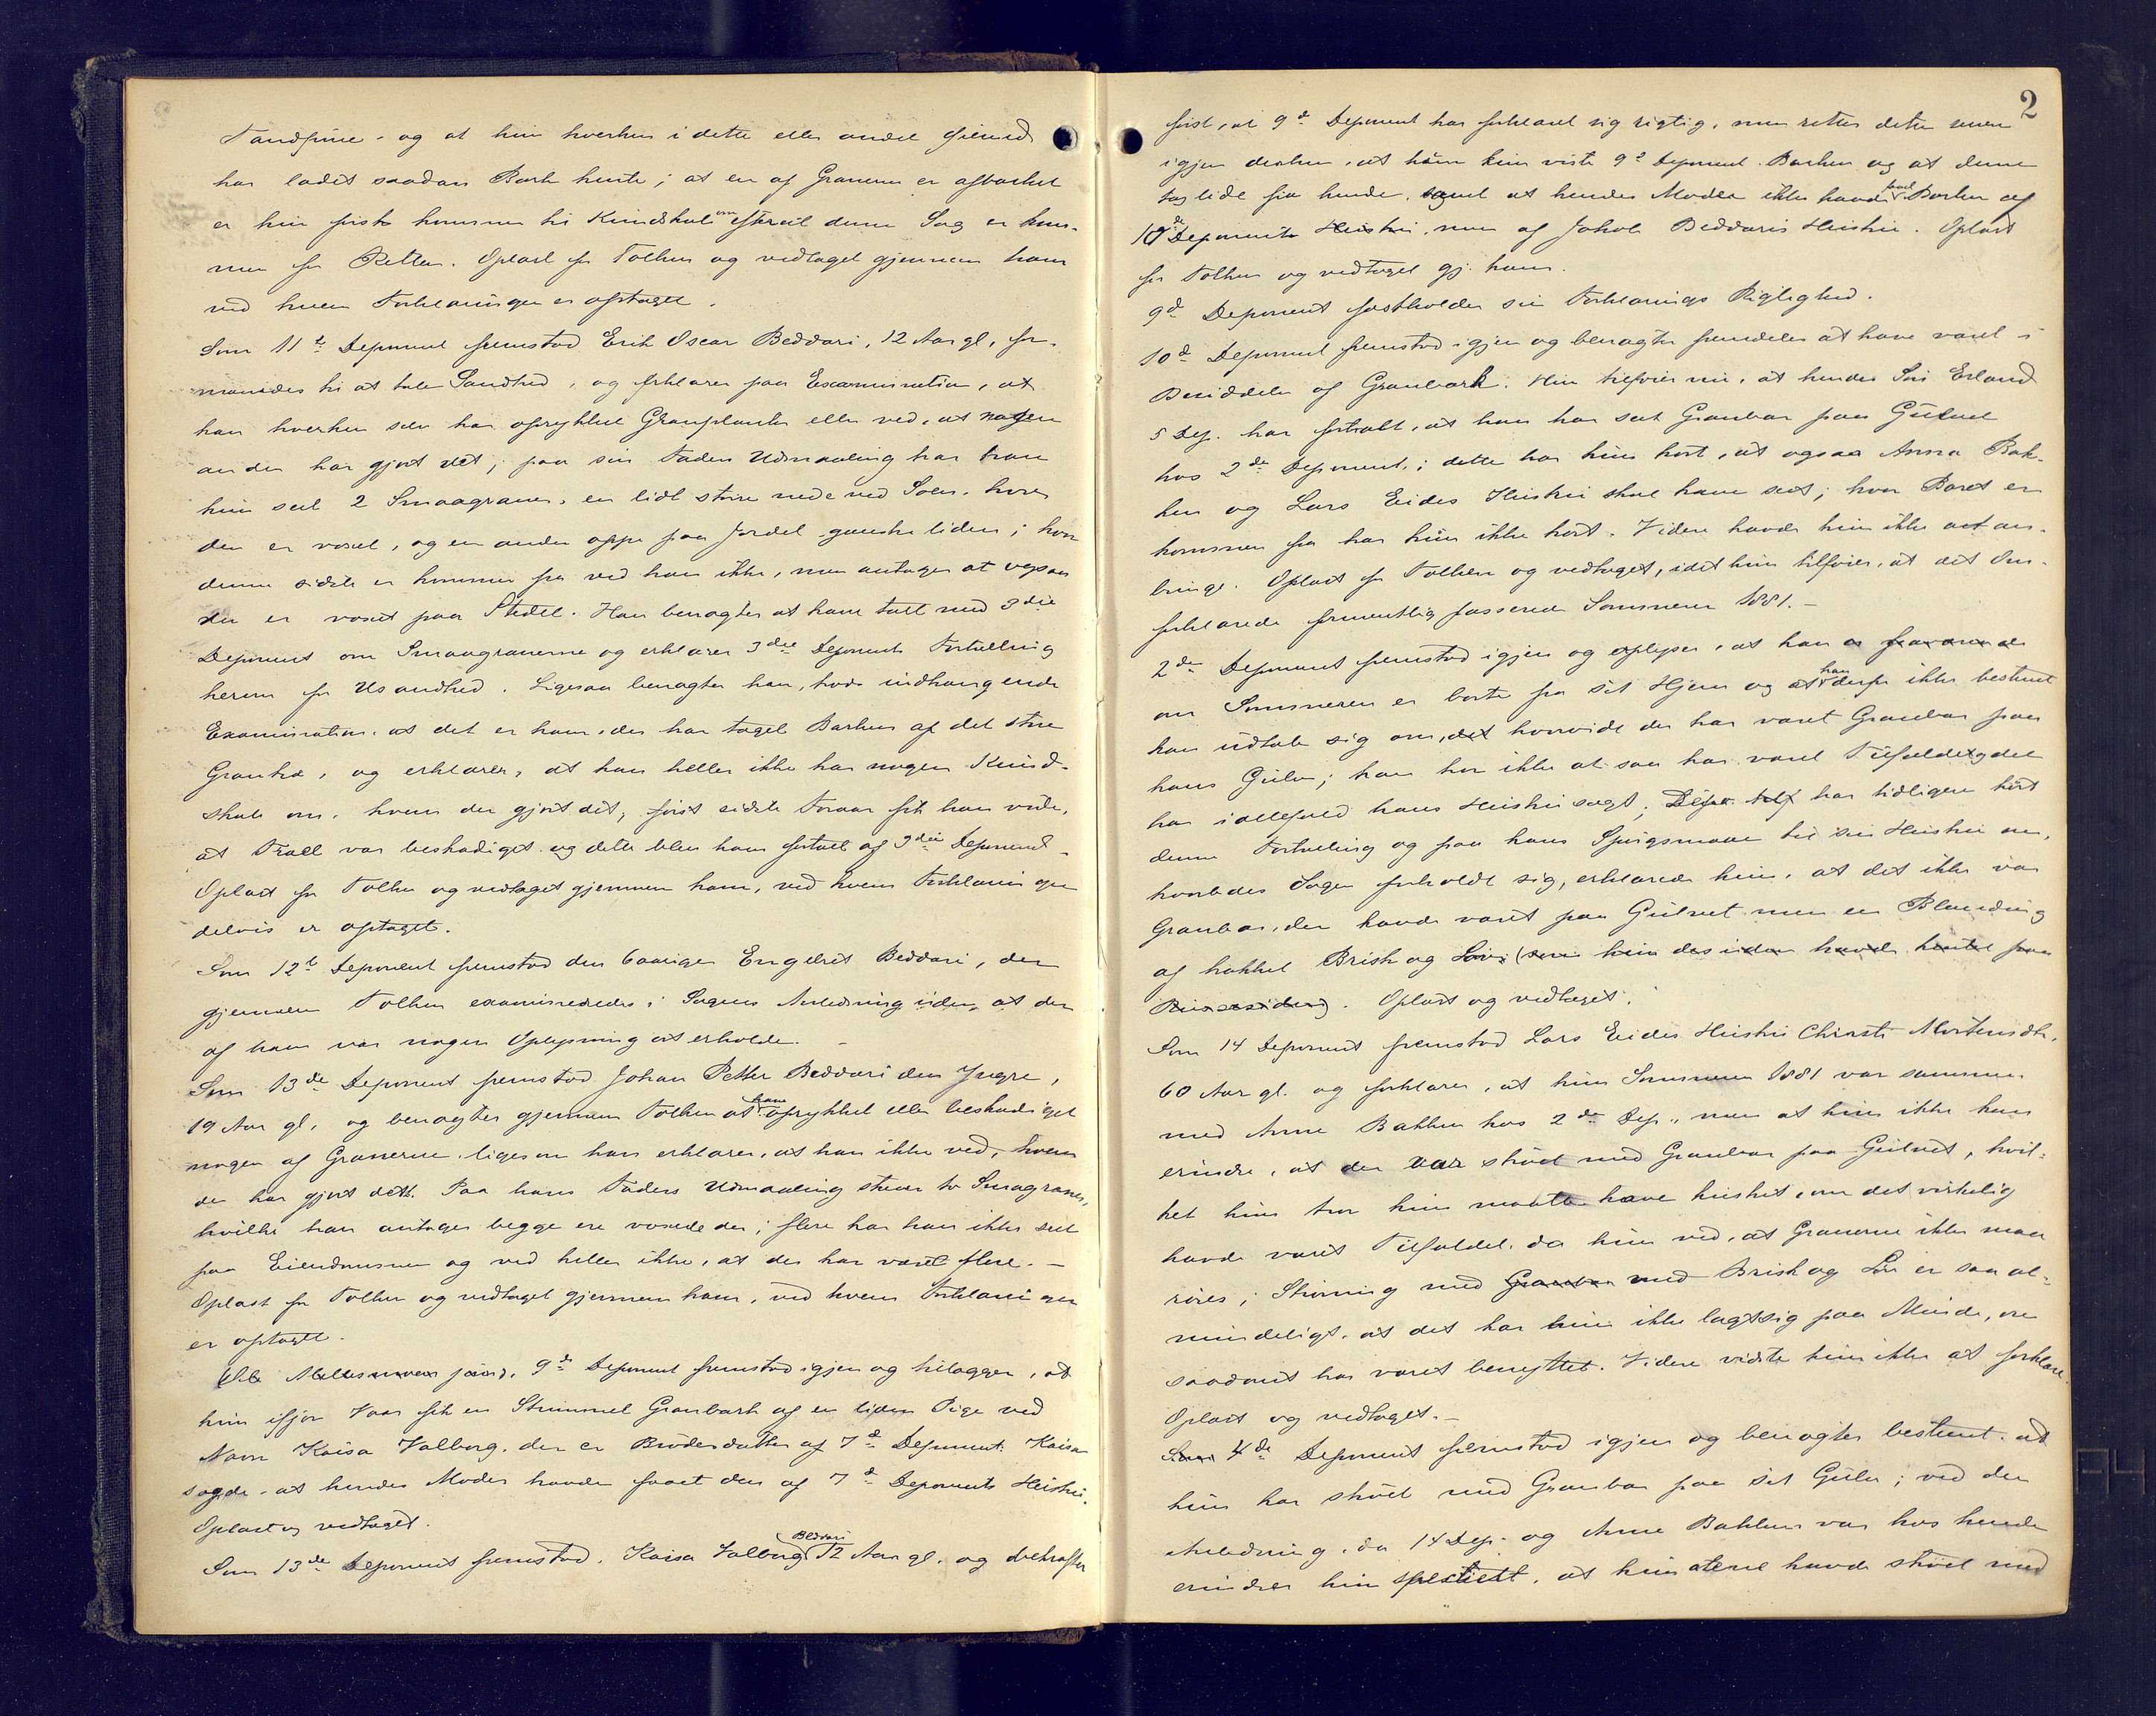 Tandpine, og at hun hverken i dette eller andet Øiemed
har ladet saadan Bark hente; at en af Granerne er afbarket
er hun først kommen til Kundskab om efterat denne Sag er kom-
men for Retten. Oplæst for Tolken og vedtaget gjennem ham
ved hvem Forklaringen er optaget.
Som 11te Deponent fremstod Erik Oscar Beddari, 12 Aar gl., for-
manedes til at tale Sandhed, og forklarer paa Examination, at
han hverken selv har oprykket Granplanter eller ved, at nogen
anden har gjort det; paa sin Faders Udmaaling har han
kun seet 2 Smaagraner, en lidt større nede ved Søen, hvor
den er voxet, og en anden oppe paa Jordet ganske liden; hvor
denne sidste er kommen fra ved han ikke, men antager at ogsaa
den er voxet paa Stedet. Han benægter at have talt med 3die
Deponent om Smaagranerne og erklærer 3die Deponents Fortælling
herom for Usandhed. Ligesaa benægter han, trods indtrængende
Examination, at det er ham, der har taget Barken af det store
Grantræ, og erklærer, at han heller ikke har nogen Kund-
skab om, hvem der gjort det; først sidste Foraar fik han vide,
at Træet var beskadiget og dette blev ham fortalt af 3die Deponent.
Oplæst for Tolken og vedtaget gjennem ham, ved hvem Forklaringen
delvis er optaget.
Som 12te Deponent fremstod den 6aarige Engelbret Beddari, der
gjennem Tolken examineredes i Sagens Anledning uden, at der
af ham var nogen Oplysning at erholde. –
Som 13de Deponent fremstod Johan Petter Beddari den Yngre,
19 Aar gl. og benægter gjennem Tolken at have oprykket eller beskadiget
nogen af Granerne, ligesom han erklærer, at han ikke ved, hvem
der har gjort dette. Paa hans Faders Udmaaling staar to Smaagraner,
hvilke han antager begge ere voxede der; flere har han ikke seet
paa Eiendommen og ved heller ikke, at der har været flere. –
Oplæst for Tolken og vedtaget gjennem ham, ved hvem Forklaringen
er optaget.
9de Deponent fremstod igjen og tilægger, at
hun ifjor Vaar fik en Strimmel Granbark af en liden Pige ved
Navn Kaisa Valborg, der er Broderdatter af 7de Deponent. Kaisa
sagde, at hendes Moder havde faaet den af 7de Deponents Hustru.
Oplæst og vedtaget.
Som 13de Deponent fremstod Kaisa Valborg Beddari 12 Aar gl. og bekræfter
2
først, at 9de Deponent har forklaret sig rigtig, men retter dette senere
igjen derhen, at hun kun viste 9de Deponent Barken og at denne
tog lidt fra hende, samt at hendes Moder ikke havde faaet Barken af
10de Deponents Hustru, men af Jakob Beddaris Hustru. Oplæst
for Tolken og vedtaget gj. ham.
9de Deponent fastholder sin Forklarings Rigtighed.
10de Deponent fremstod igjen og benægter fremdeles at have været i
Besiddelse af Granbark. Hun tilføier nu, at hendes Søn Erland
5 Dep. har fortalt, at han har seet Granbar paa Gulvet
hos 2den Deponent; dette har hun hørt, at ogsaa Anna Bak-
ken og Lars Eides Hustru skal have seet; hvor Baret er
kommen fra har hun ikke hørt. Videre havde hun ikke at an-
bringe. Oplæst for Tolken og vedtaget, idet hun tilføier, at det Om-
forklarede formentlig passerede Sommeren 1881. –
2den Deponent fremstod igjen og oplyser, at han
om Sommeren er borte fra sit Hjem og at han derfor ikke bestemt
kan udtale sig om, det hvorvidt der har været Granbar paa
hans Gulv; han tror ikke at saa har været Tilfældet og det
har i alfald hans Hustru sagt; har tidligere hørt
denne Fortælling og paa hans Spørgsmaal til sin Hustru om,
hvorledes Sagen forholdt sig, erklærede hun, at det ikke var
Granbar, der havde været paa Gulvet men en Blanding
af hakket Brisk og Løv (som hun desuden havde hentet paa
. Oplæst og vedtaget.
Som 14 Deponent fremstod Lars Eides Hustru Chirsti Mortensdtr.
60 Aar gl. og forklarer, at hun Sommeren 1881 var sammen
med Anne Bakken hos 2den Dep., men at hun ikke kan
erindre, at der var strøet med Granbar paa Gulvet, hvil-
ket hun tror hun maatte have husket, om det virkelig
havde været Tilfældet, da hun ved, at Granerne ikke maa
røres; Strøning med Granbar med Brisk og Løv er saa al-
mindeligt, at det har hun ikke lagt sig paa Minde, om
saadant har været benyttet. Videre vidste hun ikke at forklare.
Oplæst og vedtaget. –
Som 4de Deponent fremstod igjen og benægter bestemt, at
hun har strøet med Granbar paa sit Gulv; ved den
Anledning, da 14 Dep. og Anne Bakken var hos hende
erindrer hun specielt, at hun alene havde strøet med